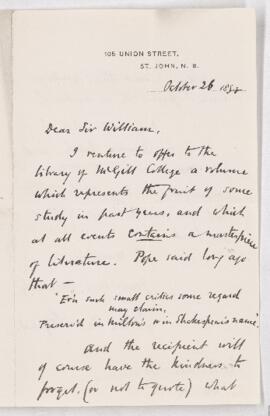 105 UNION STREET,
ST. JOHN, N. B.
October 26
Dear Sir William,
I venture to offer to the
library of McGill College a volume
which represents the fruit of some
study in past years, and which
at all events contains a masterpiece
of literature. Pope said long ago
that —
"E'en such small critics some regard
may claim,
Preserv'd in Milton's or in Shakespeare's name".
and the recipient will
of course have the kindness to
forget (or not to quote) what